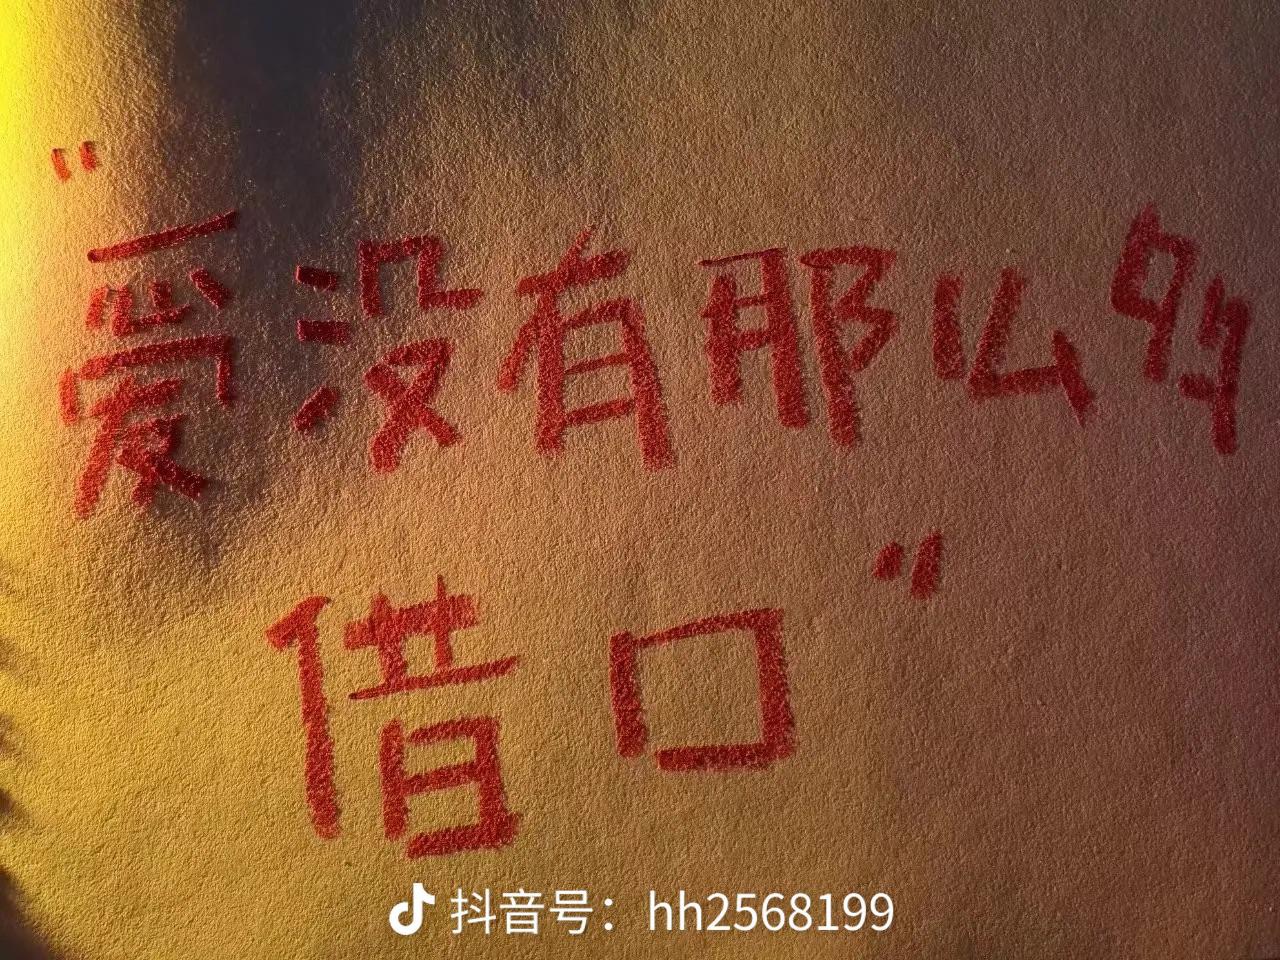 “爱没有那么多
借口”
抖音号：hh2568199